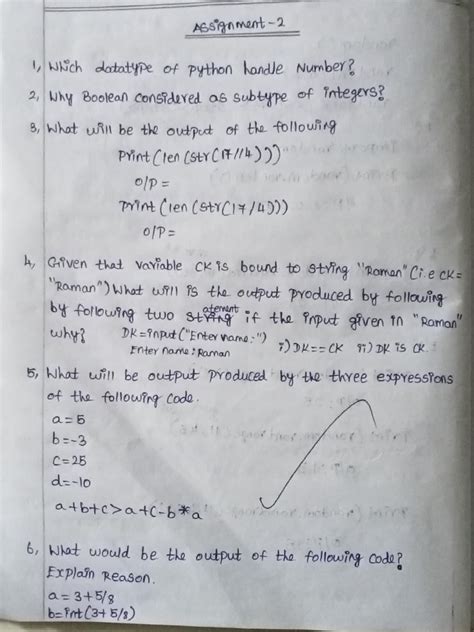 Assignment-2
1, Which datatype of python handle Number?
2, Why Boolean considered as subtype of integers?
3, What will be the output of the following
Print(len(str(17//4)))
O/P=
Print(len(str(17/4)))
O/P=
4, Given that variable CK is bound to string "Raman" (i.e CK=
"Raman") What will is the output produced by following
by following two statement if the input given in "Raman"
why? DK=input("Enter name:") i) DK==CK ii) DK is CK.
Enter name: Raman
5, What will be output produced by the three expressions
of the following code.
a=5
b=-3
c=25
d=-10
a+b+c>a+c-b*a
6, What would be the output of the following code?
Explain Reason.
a=3+5/8
b=int(3+5/8)